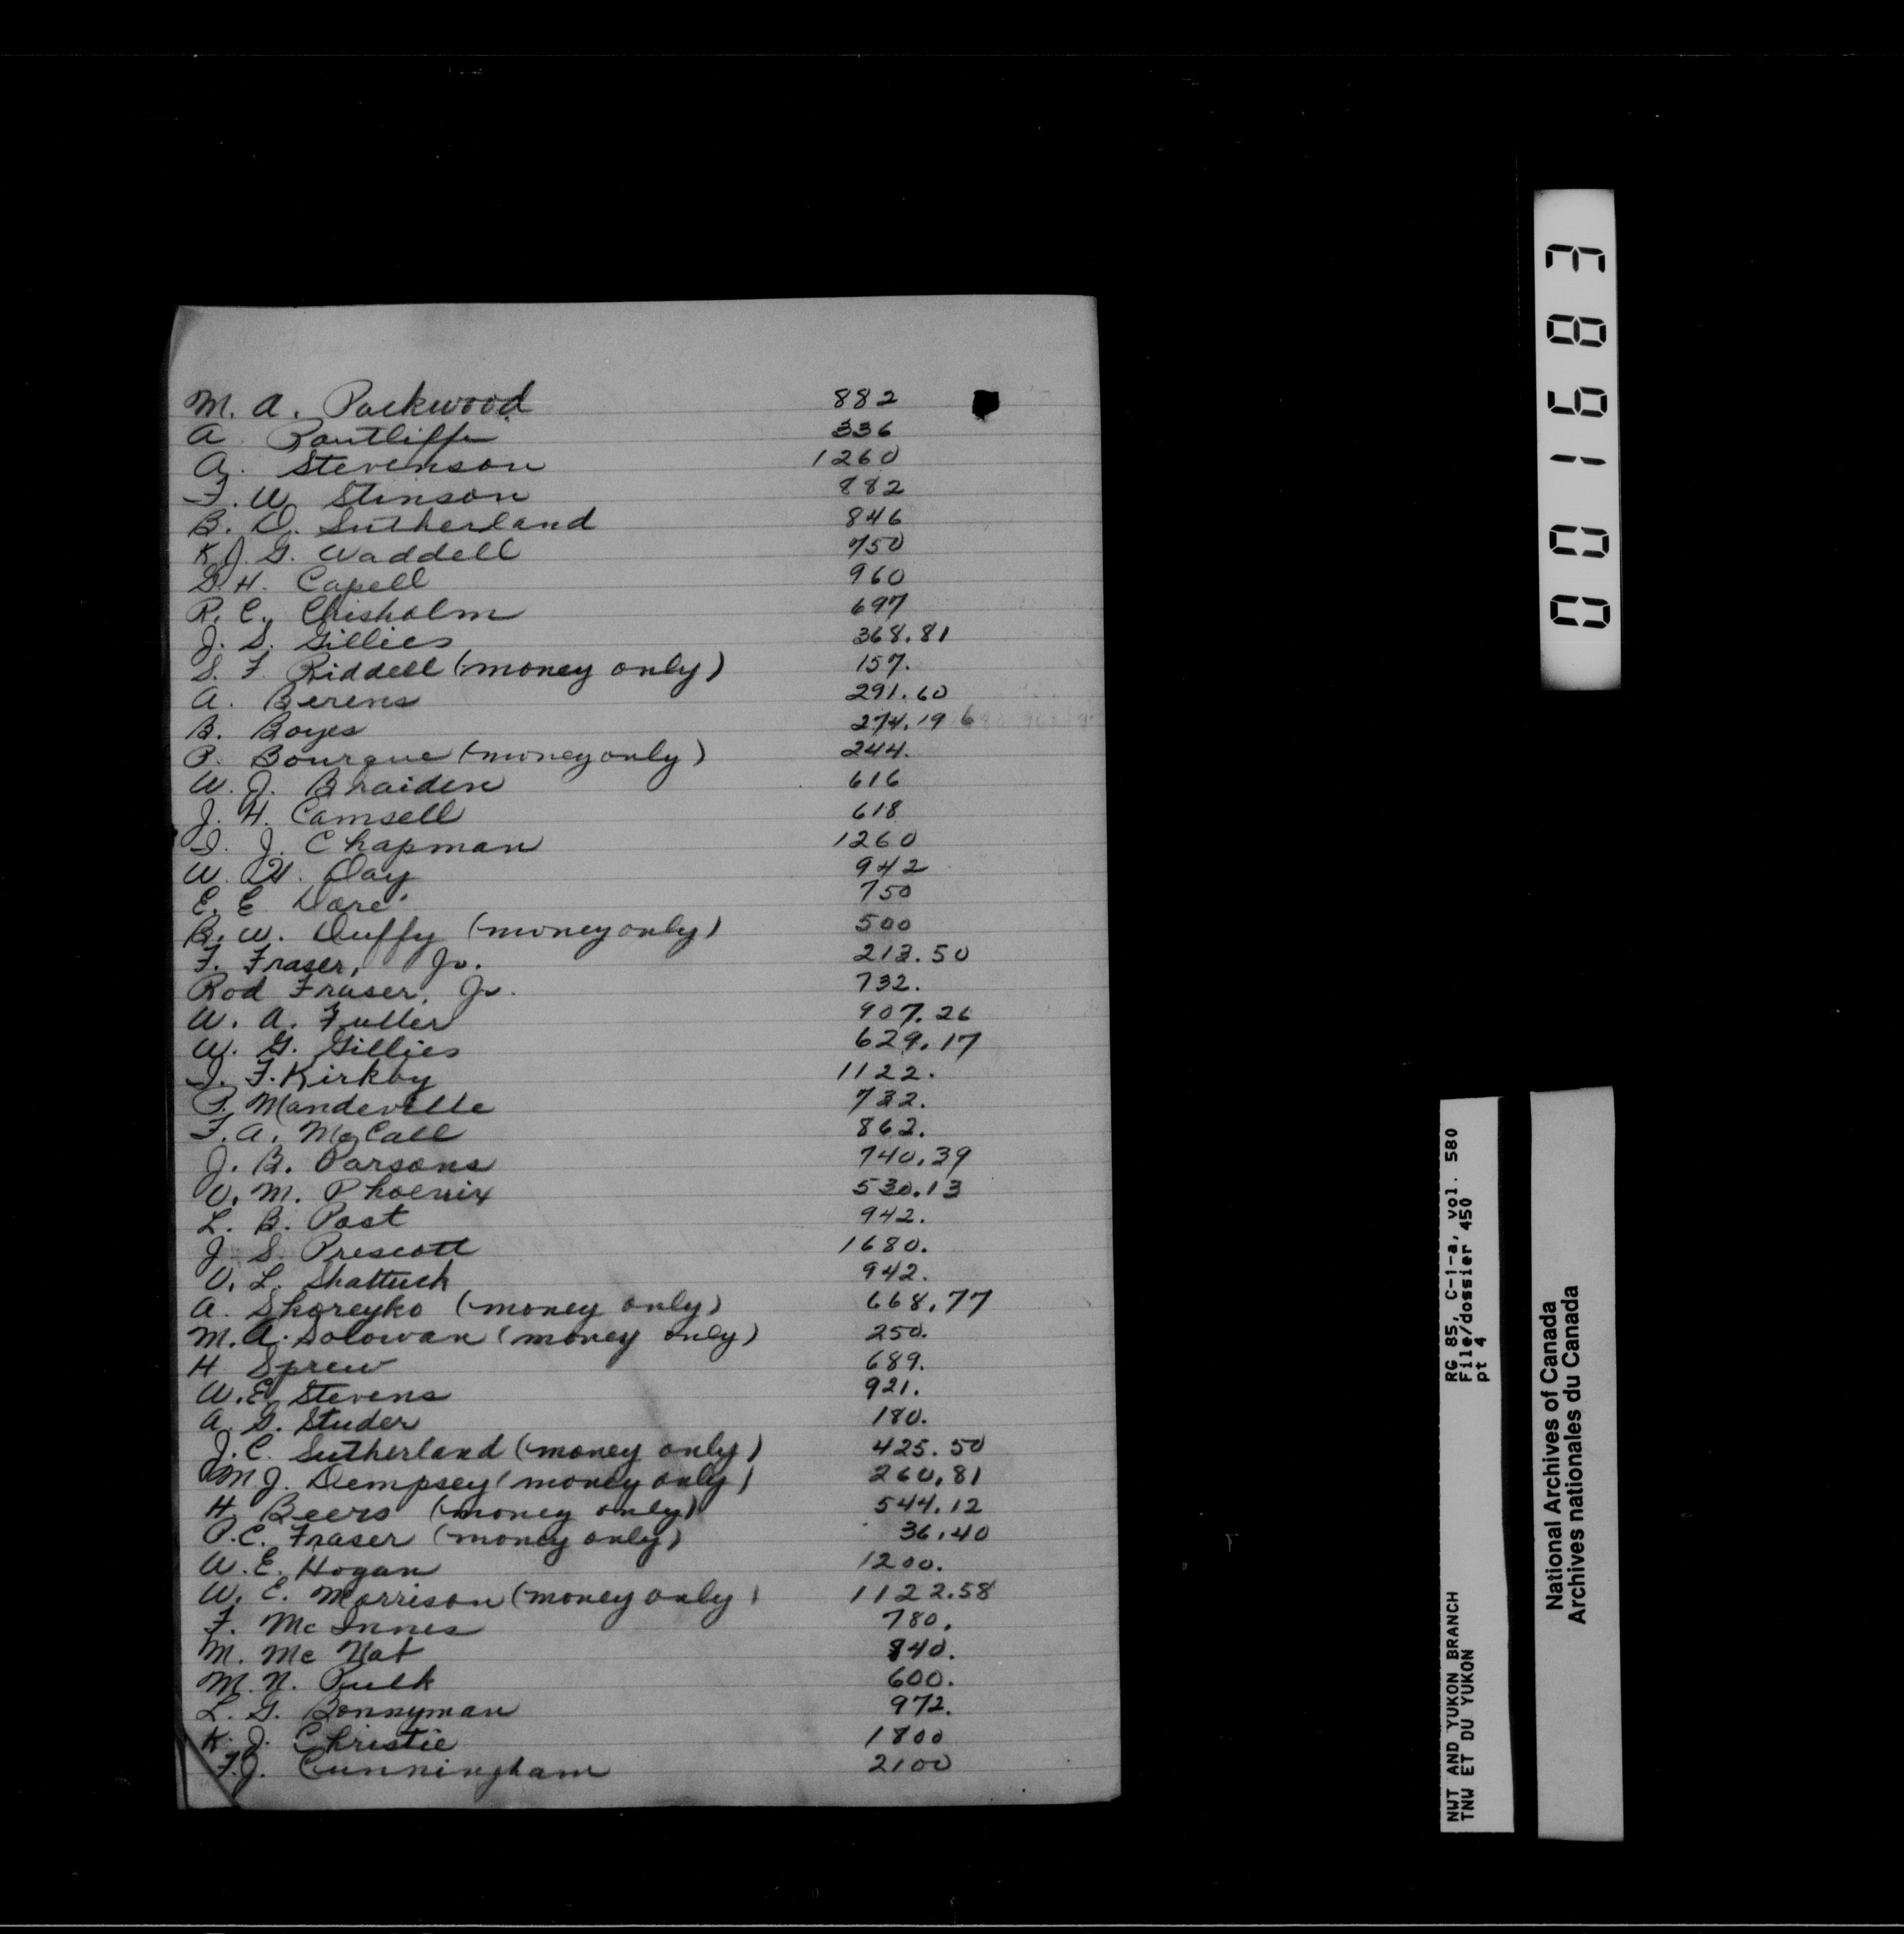 M. A. Packwood 882
A. Routliffe 336
A. Stevenson 1260
F. W. Stinson 882
B. D. Sutherland 846
K. J. G. Waddell 750
G. H. Capell 960
R. C. Chisholm 697
J. S. Gillies 368.81
S. F. Riddell (money only) 157.
A. Berens 291.60
B. Boyes 274.19
P. Bourque (money only) 244.
W. J. Braiden 616
J. H. Camsell 618
I. J. Chapman 1260
W. H. Day 942
E. E. Dore 750
B. W. Duffy (money only) 500
F. Fraser, Jr. 213.50
Rod Fraser, Jr. 732.
W. A. Fuller 907.26
W. G. Gillies 629.17
I. F. Kirkby 1122.
P. Mandeville 732.
F. A. McCall 862.
J. B. Parsons 740.39
V. M. Phoenix 530.13
L. B. Post 942.
J. S. Prescott 1680.
V. L. Shattuck 942.
A. Skoreyko (money only) 668.77
M. A. Solowan (money only) 250.
H Sprew 689.
W. E. Stevens 921.
A. G. Studer 180.
J. C. Sutherland (money only) 425.50
M J. Dempsey (money only) 260.81
H. Beers (money only) 544.12
P. C. Fraser (money only) 36.40
W. E. Hogan 1200.
W. E. Morrison (money only) 1122.58
F. McInnes 780.
M. McNab 840.
M. N. Pulk 600.
L. G. Bonnyman 972.
K. J. Christie 1800
F. J. Cunningham 2100
001683
RG 85, C-1-a, vol. 580
File/dossier 450
pt 4
NWT AND YUKON BRANCH
TNW ET DU YUKON
National Archives of Canada
Archives nationales du Canada